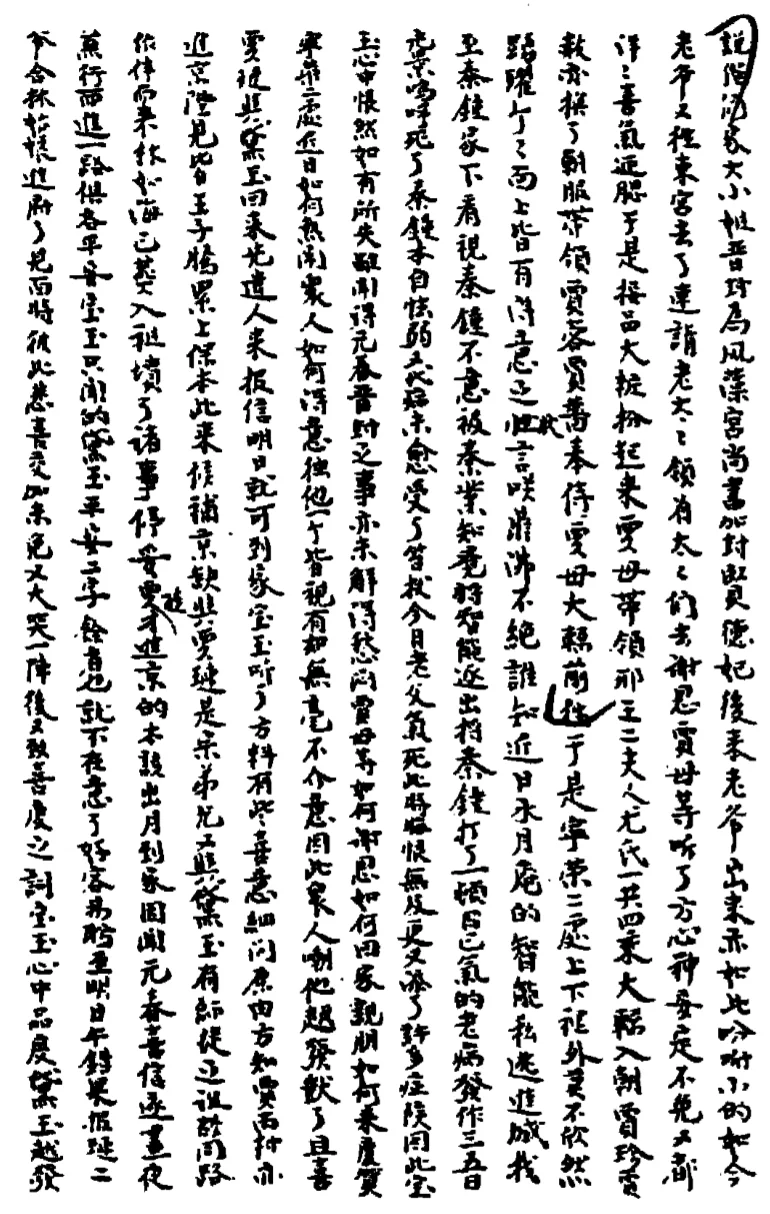 說偺們家大小姐晋封為鳳藻宮尚書加封賢德妃後来老爷出来亦如此吩咐小的如今
老爷又徃東宮去了速請老太々領着太々们去謝恩賈母等听了方心神安定不免又都
洋々喜氣迎腮于是按品大粧扮起来賈母帶領邢王二夫人尤氏一共四乘大轎入朝賈珍賈
赦亦換了朝服帶領賈蓉賈薔奉侍賈母大轎前徃于是寧榮二處上下裡外莫不欣然
踴躍个々面上皆有得意之狀言咲鼎沸不絕誰知近日水月庵的智能私逃進城找
至秦鐘家下看視秦鐘不意被秦業知覺將智能逐出將秦鐘打了一頓自己氣的老病發作三五日
光景嗚呼死了秦鐘本自怯弱又代病未愈受了笞杖今見老父氣死此時悔恨無及更又添了許多症候因此宝
玉心中悵然如有所失雖聞得元春晋封之事亦未解得愁闷賈母等如何謝恩如何回家親朋如何来慶賀
寧榮二處近日如何熱鬧衆人如何得意独他一个皆視有如無毫不介意因此衆人嘲他越發獃了且喜
賈璉與黛玉回来先遣人来报信明日就可到家宝玉听了方料有些喜意細问原由方知賈雨村亦
進京陛見皆王子騰累上保本此来候補京缺與賈璉是宗弟兄又與黛玉有師徒之誼故同路
作伴而来林如海已葬入祖墳了诸事停妥賈璉才進京的本該出月到家因聞元春喜信遂晝夜
兼行而進一路俱各平安宝玉只问的黛玉平安二字餘者也就不在意了好容易盼至明日午錯果报璉二
爷合林姑娘進府了見面時彼此悲喜交加未免又大哭一陣後又致喜慶之詞宝玉心中品度黛玉越發